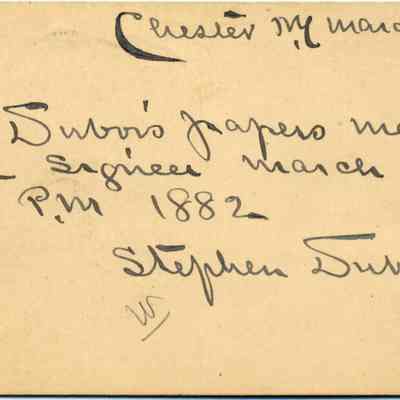 Chester NY Marc
Dubois papers me
Signed March
P.M 1882
Stephen Dub
W